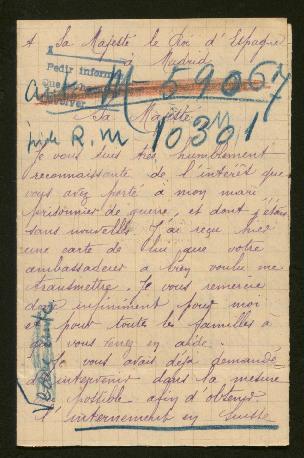 A Sa Majesté le Roi d'Espagne
à Madrid
Pedir inform
Que
devolver
M 59067
Sa Majesté
R.M 10301
Je vous suis très humblement
reconnaissante de l'intérêt que
vous avez porté à mon mari
prisonnier de guerre, et dont j'étais
sans nouvelles. J'ai reçu hier
une carte de lui que votre
ambassadeur a bien voulu me
transmettre. Je vous remercie
donc infiniment pour moi
et pour toutes les familles à
qui vous venez en aide.
Je vous avais déjà demandé
d'intervenir dans la mesure
possible afin d'obtenir
l'internement en Suisse